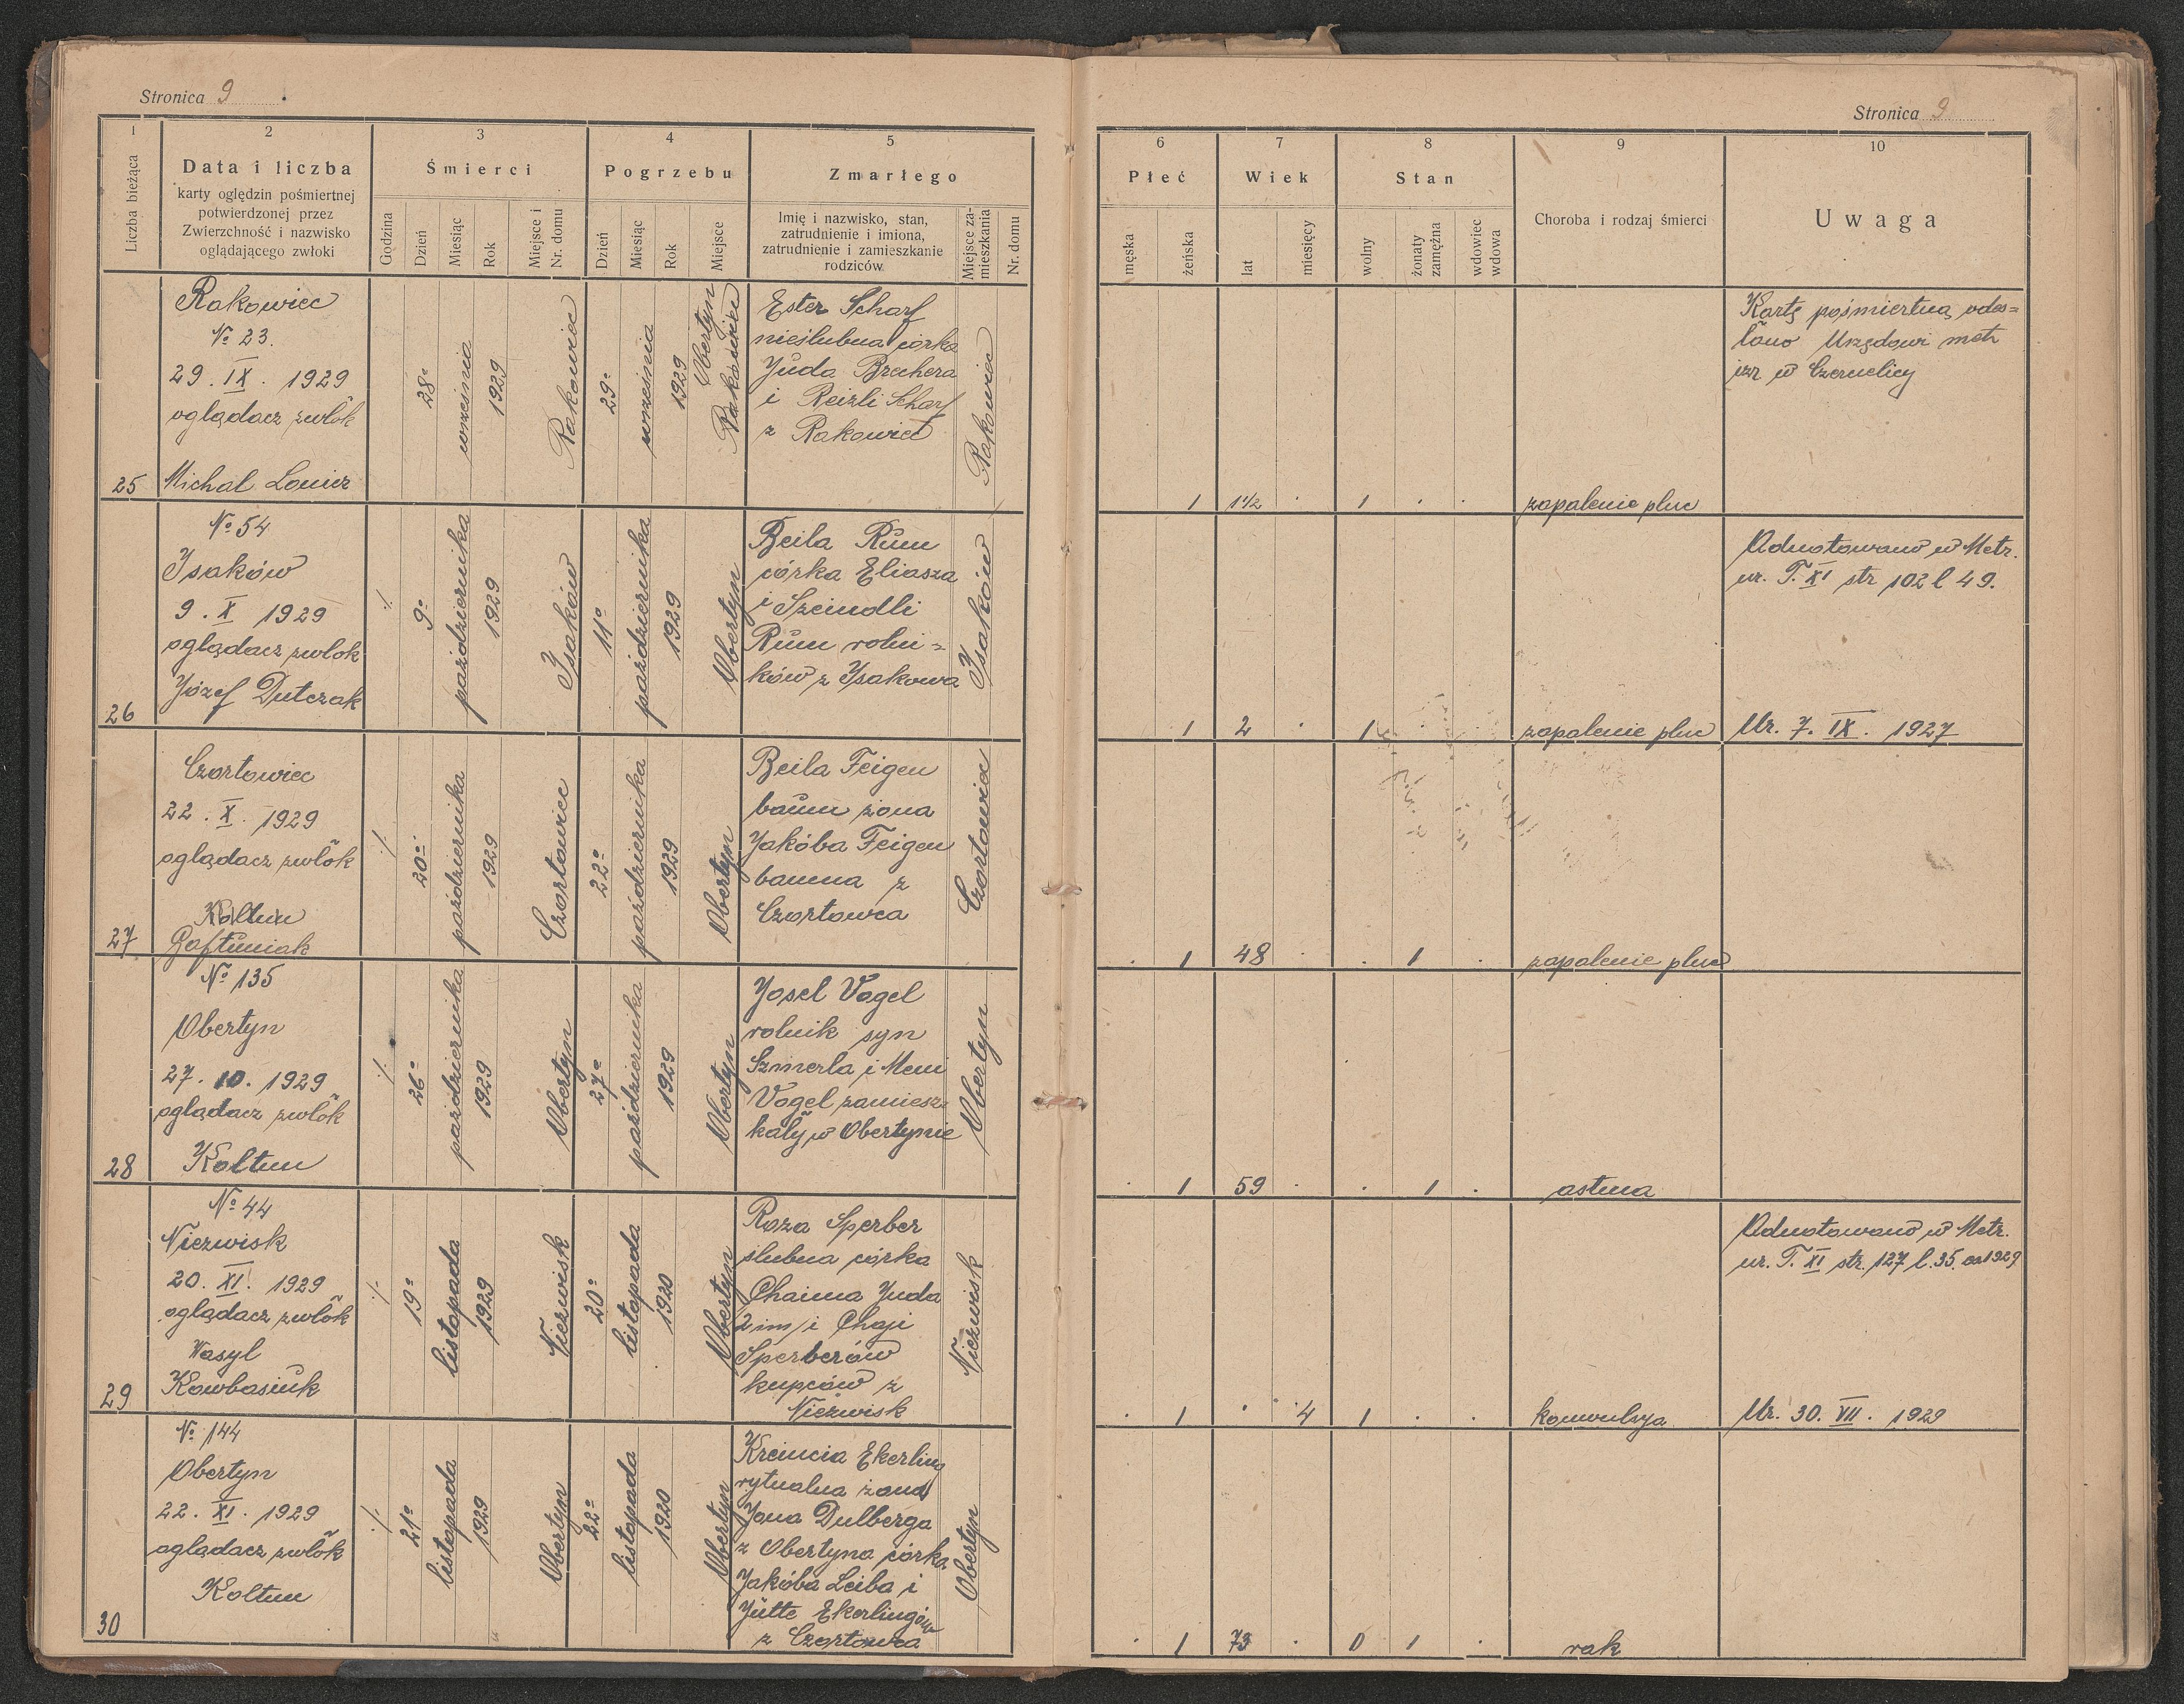 Stronica 9
1
2
3
4
5
Liczba bieżąca
Data i liczba
karty oględzin pośmiertnej
potwierdzonej przez
Zwierzchność i nazwisko
oglądającego zwłoki
Śmierci
Godzina
Dzień
Miesiąc
Rok
Miejsce i
Nr. domu
Pogrzebu
Dzień
Miesiąc
Rok
Miejsce
Zmarłego
Imię i nazwisko, stan,
zatrudnienie i imiona,
zatrudnienie i zamieszkanie
rodziców.
Miejsce za-
mieszkania
Nr. domu
25
Rakowiec
№ 23.
29. IX. 1929
oglądacz zwłok
Michal
28º
września
1929
Rakowiec
29º
września
1929
Obertyn
Rakowiec
Ester Scharf
nieślubna córka
Juda Brechera
i Reizli Scharf
z Rakowca
Rakowiec
26
№ 54
Isaków
9. X 1929
oglądacz zwłok
Józef Dutczak
·/.
9º
października
1929
Isaków
11º
października
1929
Obertyn
Beila Rum
córka Eliasza
i Szeindli
Rum rolni=
ków z Isakowa
Isaków
27
Czortowiec
22. X. 1929
oglądacz zwłok
Koltun
·/.
20º
października
1929
Czortowiec
22º
października
1929
Obertyn
Beila Feigen
baum żona
Jakóba Feigen
bauma z
Czortowca
Czortowiec
28
№ 135
Obertyn
27. 10. 1929
oglądacz zwłok
Koltun
·/.
26º
października
1929
Obertyn
27º
października
1929
Obertyn
Josel Vogel
rolnik syn
Szmerla i Meni
Vogel zamiesz
kały w Obertynie
Obertyn
29
№ 44
Niezwisk
20. XI. 1929
oglądacz zwłok
Wasyl
Kowbasiuk
·/.
19º
listopada
1929
Niezwisk
20º
listopada
1920
Obertyn
Roza Sperber
ślubna córka
Chaima Juda
2 im/i Chaji
Sperberów
kupców z
Niezwisk
Niezwisk
30
№ 144
Obertyn
22. XI. 1929
oglądacz zwłok
Koltun
·/.
21º
listopada
1929
Obertyn
22º
listopada
1920
Obertyn
Kreincia Ekerling
rytualna żona
Jona Dulberga
z Obertyna córka
Jakóba Leiba i
Jütte Ekerlingów
z Czortowca
Obertyn
Stronica 9
6
7
8
9
10
Płeć
męska
żeńska
Wiek
lat
miesięcy
Stan
wolny
żonaty
zamężna
wdowiec
wdowa
Choroba i rodzaj śmierci
Uwaga
1
1 1/2
1
zapalenie pluc
Kartę pośmiertną odes=
łano Urzędowi metr
izr w Czernelicy
1
2
1
zapalenie pluc
Adnotowano w Metr.
ur. T. XI str 102 l 49.
Ur. 7. IX. 1927
1
48
1
zapalenie pluc
1
59
1
astma
1
4
1
konwulsja
Adnotowano w Metr.
ur. T. XI str. 127 l. 35. 1929
Ur. 30. VII. 1929
1
73
0
1
rak